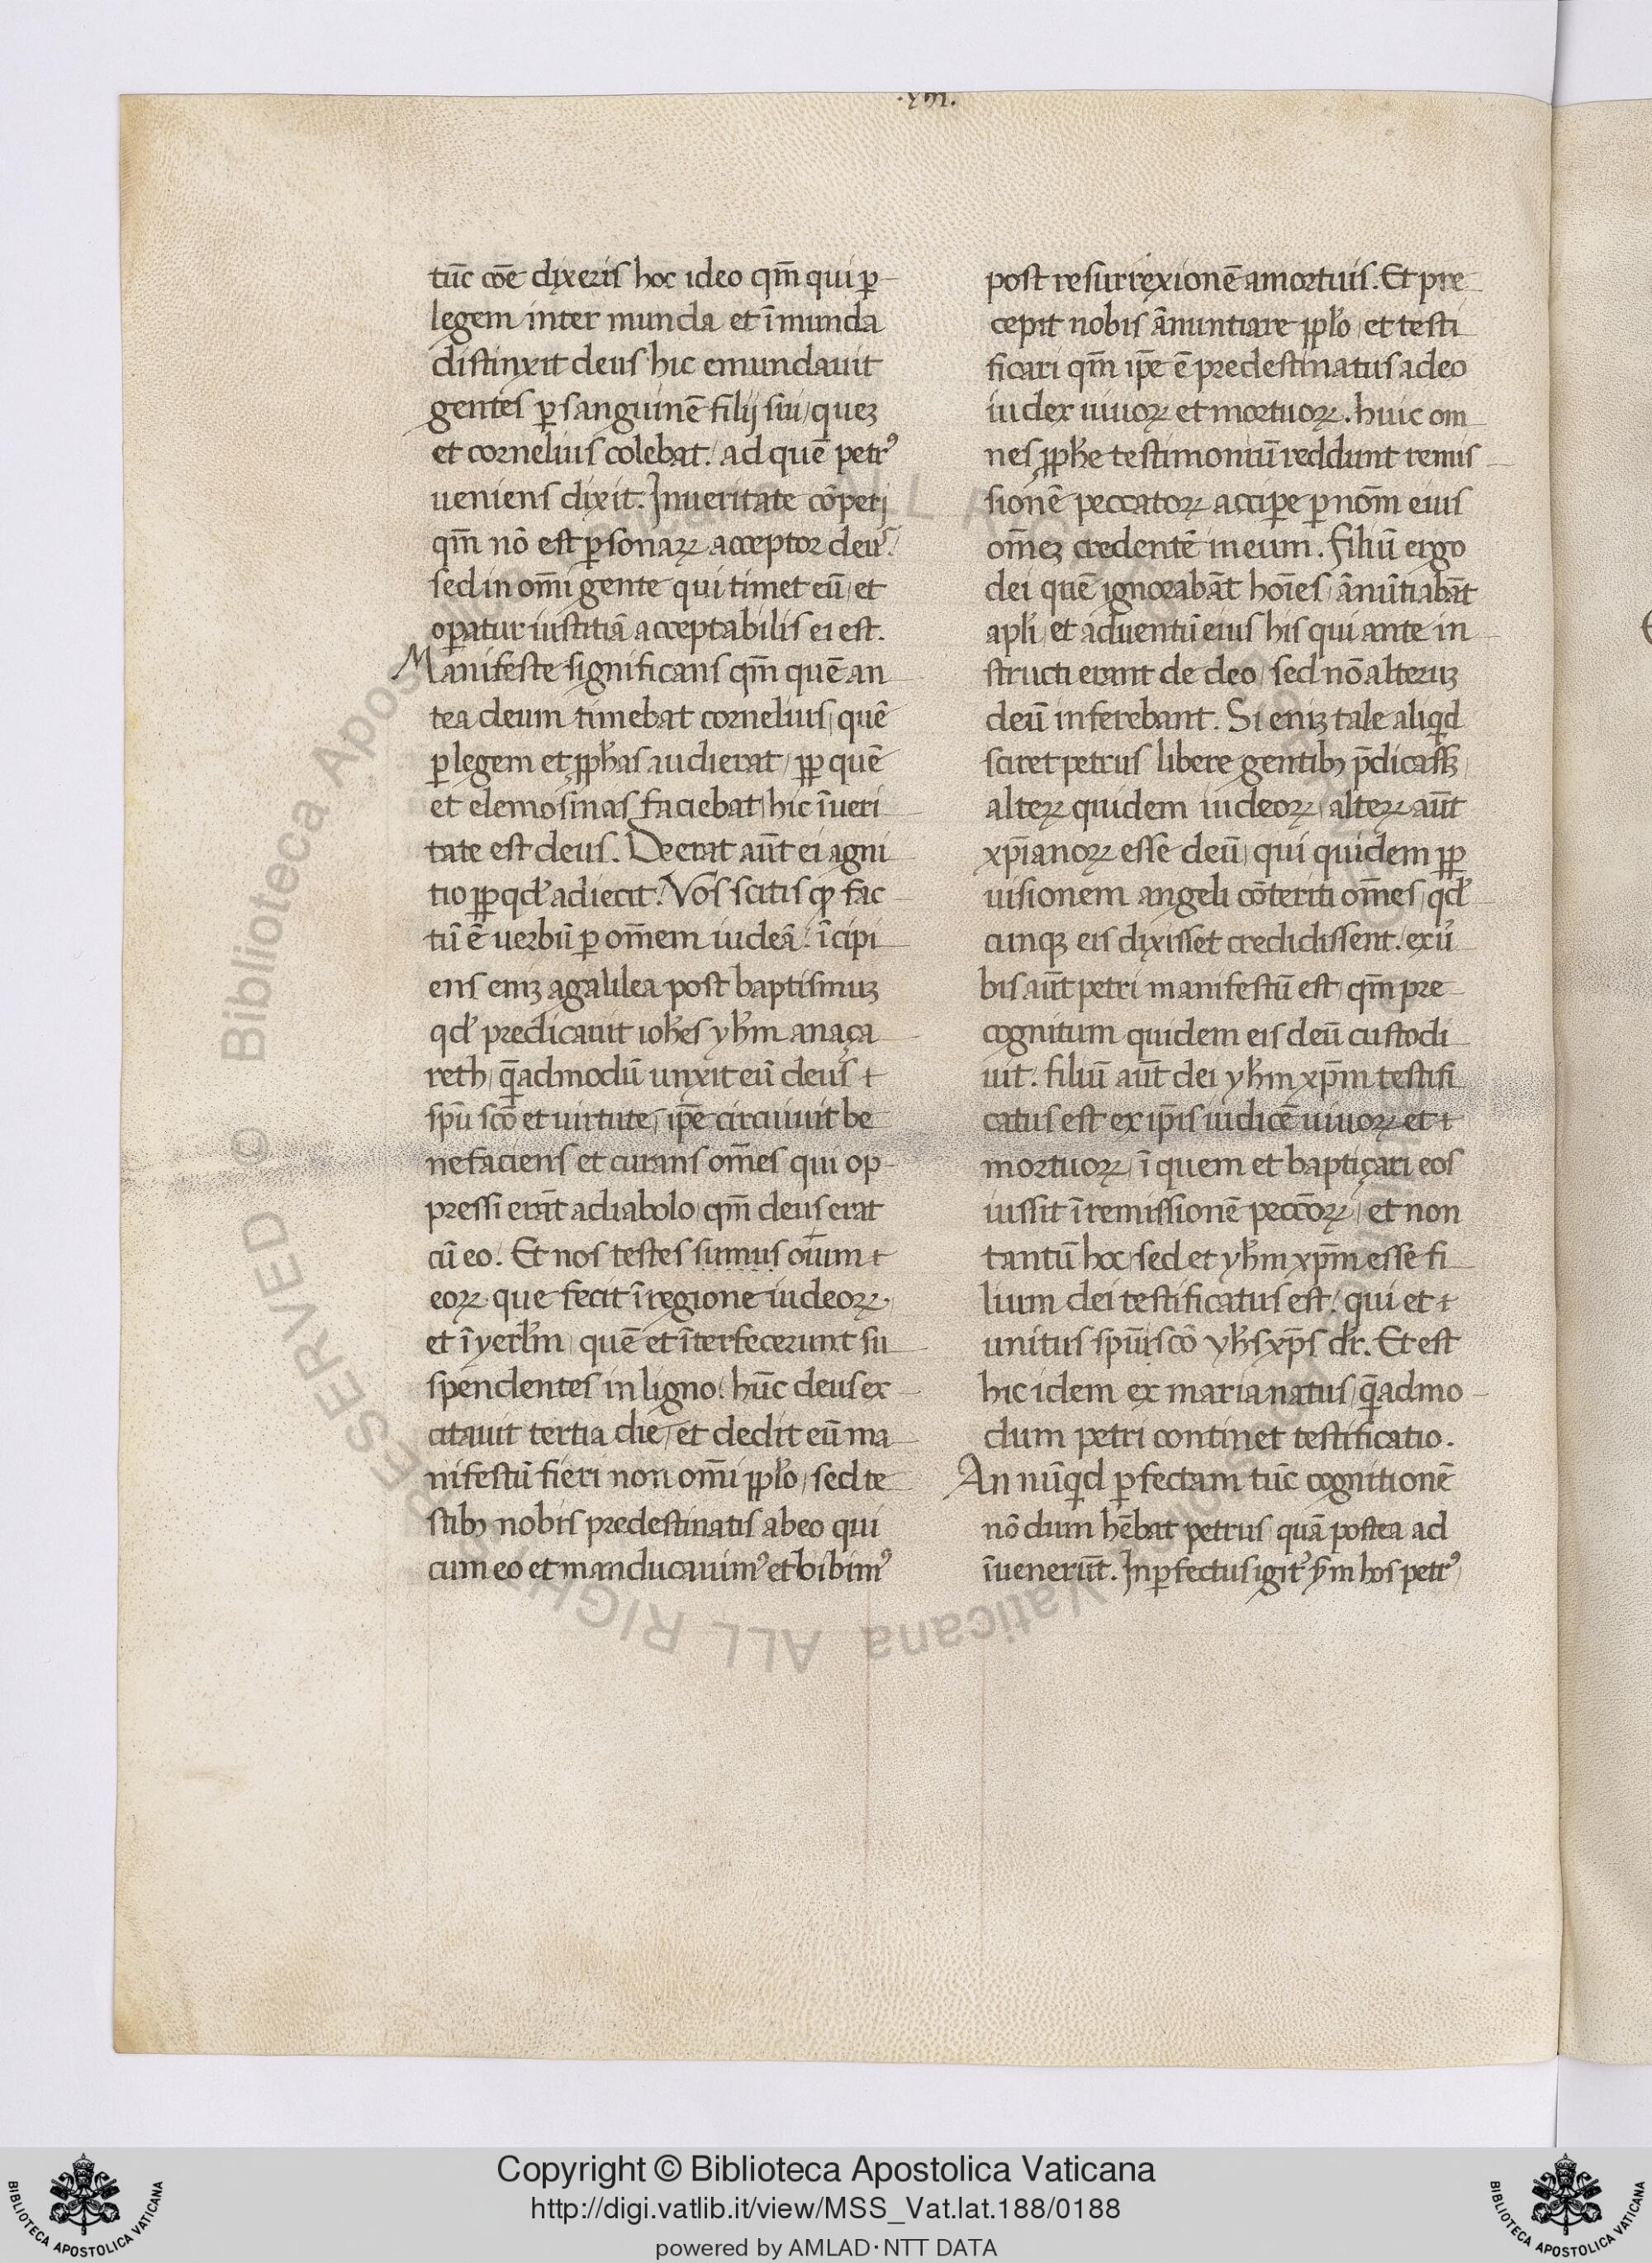 .xiii.
tūc cōe dixeris hoc ideo qm̄ qui ꝑ
legem inter munda et īmunda
distinxit deus hic emundauit
gentes ꝑ sanguinē filij sui, quez
et cornelius colebat. ad quē petrꝰ
ueniens dixit. Inueritate cōperi
qm̄ nō est ꝑsonaꝝ acceptor deus.
sed in om̄i gente qui timet eū, et
oꝑatur iustitiā acceptabilis ei est.
Manifeste significans qm̄ quē an
tea deum timebat cornelius, quē
ꝑ legem et ꝓph̄as audierat, ꝓp quē
et elemosinas faciebat, hic īueri
tate est deus. Deerat aūt ei agni
tio ꝓp qd̓ adiecit. Vos scitis ꝙ fac
tū ē uerbū ꝑ om̄em iudeā. īcipi
ens eniz agalilea post baptismuz
qd̓ predicauit ioh̄es yh̄m anaça
reth, q̄admodū unxit eū deus
sp̄u sc̄o et uirtute, ip̄e circuiuit be
nefaciens et curans om̄es qui op
pressi erāt adiabolo, qm̄ deus erat
cū eo. Et nos testes sumus oīum
eoꝝ que fecit īregione iudeoꝝ
et īyerl̄m, quē et īterfecerunt su
spendentes in ligno. hūc deus ex
citauit tertia die, et dedit eū ma
nifestū fieri non om̄i ꝓpl̄o, sed te
stibꝫ nobis predestinatis abeo qui
cum eo et manducauimꝰ et bibimꝰ
post resurrexionē amortuis. Et pre
cepit nobis ānuntiare ꝓpl̄o, et testi
ficari qm̄ ip̄e ē predestinatus adeo
iudex uiuoꝝ et mortuoꝝ. huic om
nes ꝓph̄e testimoniū reddunt remis
sionē peccatoꝝ accipe ꝑ nom̄ eius
om̄ez credentē ineum. filiū ergo
dei quē ignorabāt hoīes, ānūtiabāt
apl̄i, et aduentū eius his qui ante in
structi erant de deo, sed nō alteruz
deū inferebant. Si eniz tale aliqd
sciret petrus libere gentibꝫ p̄dicassꝫ
alteꝝ quidem iudeoꝝ, alteꝝ aūt
xp̄ianoꝝ esse deū, qui quidem ꝓp
uisionem angeli cōteriti om̄es, qd̓
cunqꝫ eis dixisset credidissent. exu̓
bis aūt petri manifestū est, qm̄ pre
cognitum quidem eis deū custodi
uit. filiū aūt dei yh̄m xp̄m testifi
catus est ex ip̄is iudicē uiuoꝝ et
mortuoꝝ, ī quem et baptiçari eos
iussit īremissionē peccōꝝ, et non
tantū hoc, sed et yh̄m xp̄m esse fi
lium dei testificatus est. qui et
unitus sp̄ui sc̄o yh̄s xp̄s dr̄. Et est
hic idem ex maria natus, q̄admo
dum petri continet testificatio.
An nūqd ꝑfectam tūc cognitionē
nō dum hēbat petrus quā postea ad
īuenerūt. Inꝑfectus igitꝰ s̄m hos petrꝰ
Copyright © Biblioteca Apostolica Vaticana
http://digi.vatlib.it/view/MSS_Vat.lat.188/0188
powered by AMLAD·NTT DATA